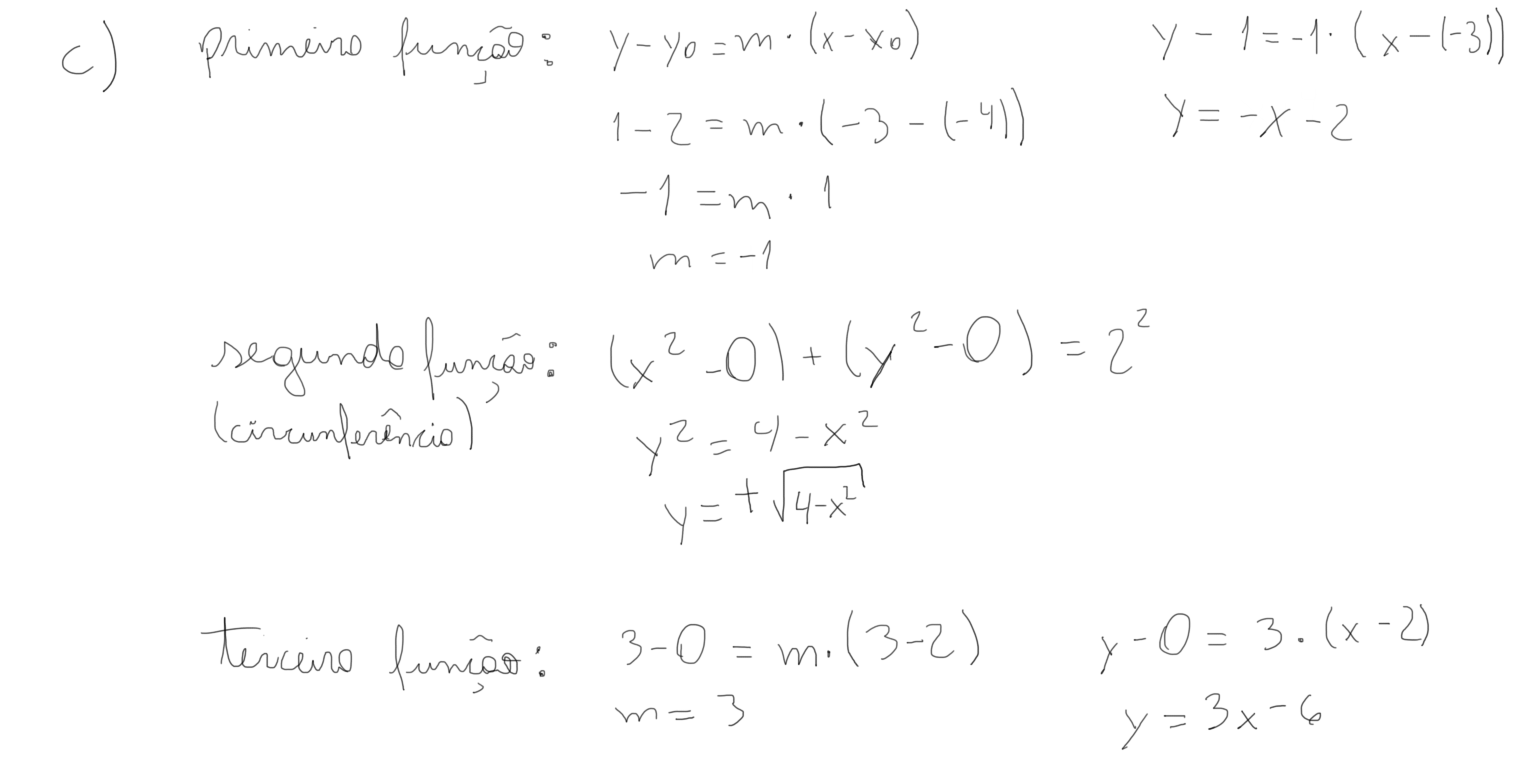 c) primeira função: y-y0 = m · (x-x0) y - 1 = -1 · (x-(-3))
1-2 = m · (-3 - (-4)) y = -x-2
-1 = m · 1
m = -1
segunda função: (x²-0) + (y²-0) = 2²
(circunferência) y² = 4-x²
y = +√(4-x²)
terceira função: 3-0 = m · (3-2) y-0 = 3 · (x-2)
m = 3 y = 3x-6